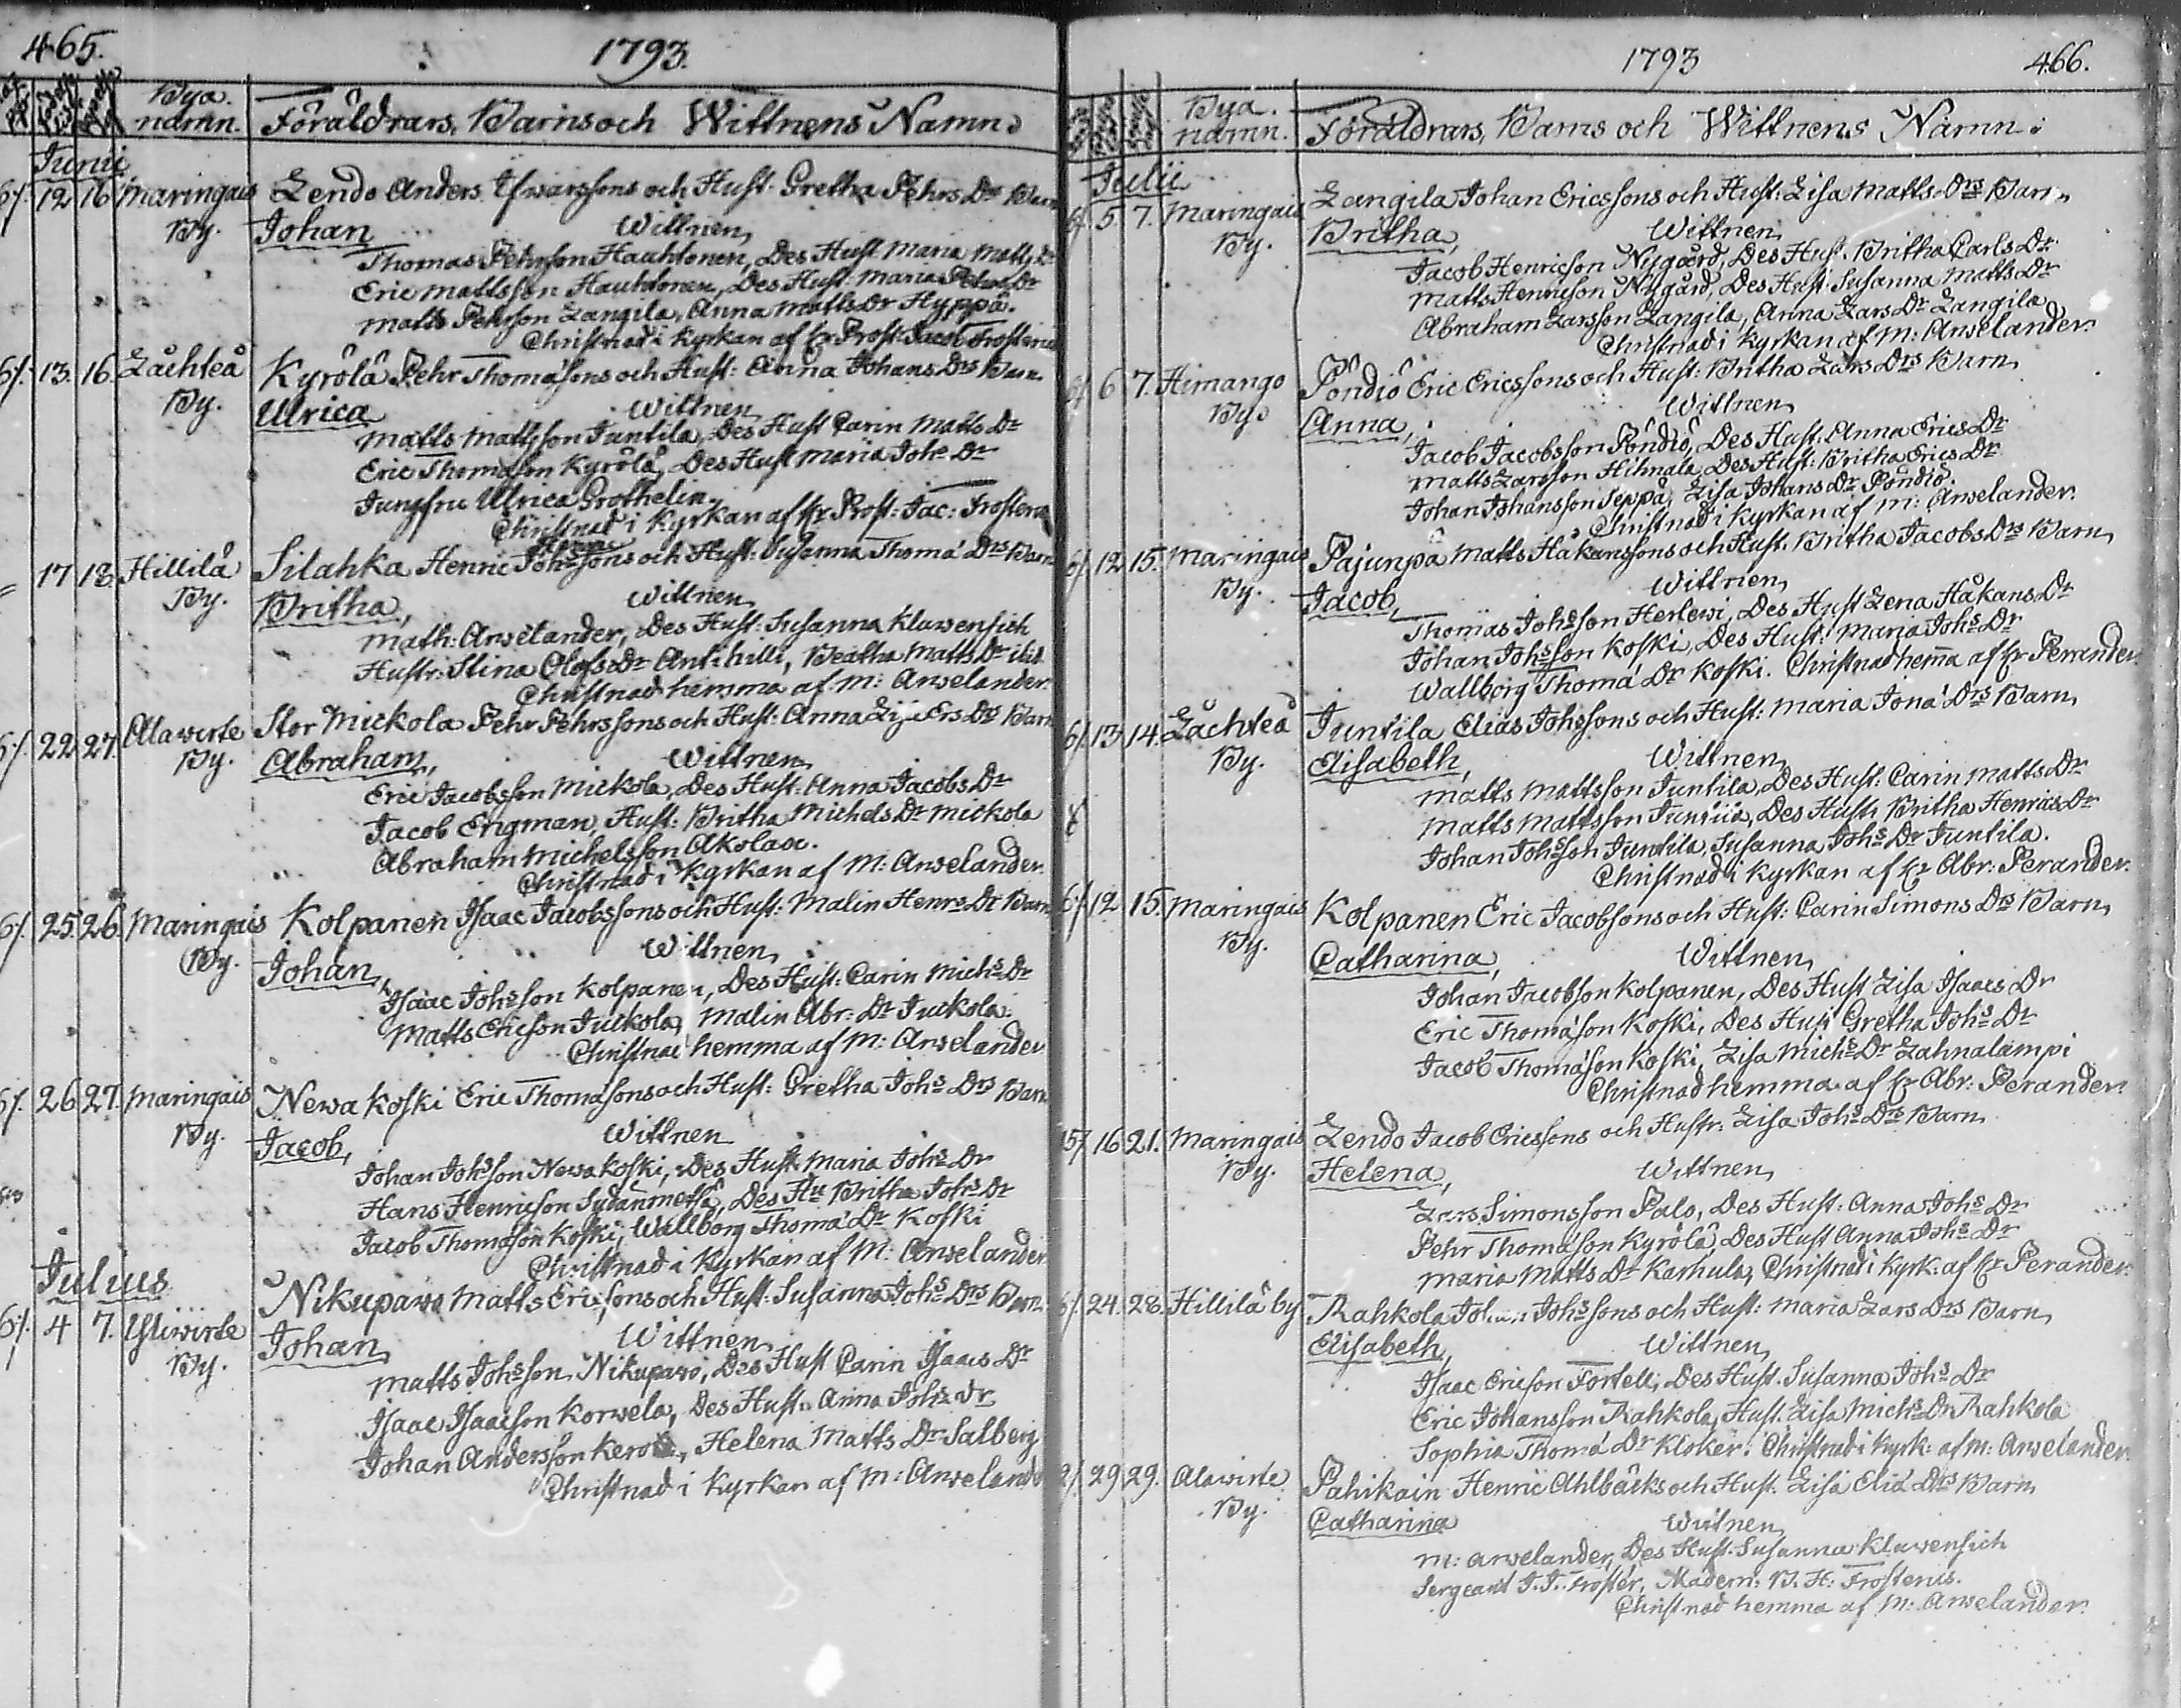 465.
1793.
Bya namn.
Föräldrars, Barns och Wittnens Namn.
Junii
12 16 Maringais By.
Lendo Anders Ifwarssons och Hust. Gretha Pehrs Drs Barn
Johan Wittnen
Thomas Pehrsson Hauhtonen, Des Hust Maria Matts Dr
Eric Mattsson Hauhtonen, Des Hust. Maria Pehrs Dr
Matts Pehrsson Langila, Anna Matts Dr Hyppä.
Christnad i Kyrkan af Hr Prost Jacob Frosterus
6/. 13. 16. Låchteå By.
Kyrölä Pehr Thomassons och Hust: Anna Johans Drs Barn
Ulrica Wittnen
Matts Mattsson Juntila, Des Hust Carin Matts Dr
Eric Thomasson Kyrölä, Des Hust Maria Johs Dr
Jungfru Ulrica Grothelin.
Christnad i Kyrkan af Hr Prost: Jac: Frosterus
17 18. Hillilä By.
Silahka Henric Johssons och Hust: Susanna Thoma Drs Barn
Britha, Wittnen
Math: Arwelander, Des Hust: Susanna Klawensich
Hustr: Stina Olofs Dr Antihilli, Beatha Matts Dr ibid
Christnad hemma af M: Arwelander.
6/. 22 27. Alawirte By.
Stor Mickola Pehr Pehrssons och Hust: Anna Lisa Ers Drs Barn
Abraham, Wittnen
Eric Jacobsson Mickola, Des Hust: Anna Jacobs Dr
Jacob Engman, Hust: Britha Michels Dr Mickola
Abraham Michelsson Akola.
Christnad i Kyrkan af M: Arwelander.
6/. 25. 26. Maringais By.
Kolpanen Isaac Jacobssons och Hust: Malin Henrs Dr Barn
Johan, Wittnen
Isaac Johsson Kolpanen, Des Hust: Carin Michs Dr
Matts Ericson Juckola, Malin Abr: Dr Juckola.
Christnad hemma af M: Arwelander
6/. 26 27. Maringais By.
Newa Koski Eric Thomasons och Hust: Gretha Johs Drs Barn
Jacob, Wittnen
Johan Johsson Newa Koski, Des Hust Maria Johs Dr
Hans Henricson Sydänmetsä, Des Hu Britha Johs Dr
Jacob Thomason Koski, Wallborg Thoma Dr Koski
Christnad i Kyrkan af M: Arwelander
Julius
6/. 4 7. Yliwirte By.
Nikupawo Matts Ericsons och Hust: Susanna Johs Drs Barn
Johan Wittnen
Matts Johsson Nikupawo, Des Hust Carin Isaacs Dr
Isaac Isaacson Korwela, Des Hust: Anna Johs Dr
Johan Andersson, Helena Matts Dr Salberg
Christnad i Kyrkan af M: Arwelander
1793
466.
Bya namn.
Föräldrars, Barns och Wittnens Namn:
Julii
5. 7. Maringais By.
Langila Johan Ericssons och Hust: Lisa Matts Drs Barn
Britha, Wittnen
Jacob Henricson Nygård, Des Hust. Britha Carls Dr.
Matts Henricson Nygård, Des Hust: Susanna Matts Dr
Abraham Larsson Langila, Anna Lars Dr Langila
Christnad i Kyrkan af M: Arwelander.
6 7. Himango By.
Pöndiö Eric Ericssons och Hust: Britha Lars Drs Barn
Anna, Wittnen
Jacob Jacobsson Pöndiö, Des Hust. Anna Erics Dr
Matts Larsson Hihnala, Des Hust: Britha Erics Dr
Johan Johansson Seppä, Lisa Johans Dr Pöndiö.
Christnad i Kyrkan af M: Arwelander.
6/. 12 15. Maringais By.
Pajunpä Matts Håkanssons och Hust. Britha Jacobs Drs Barn
Jacob, Wittnen
Thomas Johsson Herlewi, Des Hust Lena Håkans Dr
Johan Johsson Koski, Des Hust: Maria Johs Dr
Wallborg Thoma Dr Koski. Christnad hema af Hr Perander
6/. 13 14. Låchteå By.
Juntila Elias Johssons och Hust: Maria Jona Drs Barn
Elisabeth, Wittnen
Matts Mattsson Juntila, Des Hust: Carin Matts Dr
Matts Mattsson Juntila, Des Hustr Britha Henrics Dr
Johan Johsson Juntila, Susanna Johs Dr Juntila.
Christnad i Kyrkan af Hr Abr: Perander.
6/. 12 15. Maringais By.
Kolpanen Eric Jacobsons och Hust: Carin Simons Drs Barn
Catharina, Wittnen
Johan Jacobson Kolpanen, Des Hust Lisa Isaacs Dr
Eric Thomason Koski, Des Hust Gretha Johs Dr
Jacob Thomason Koski, Lisa Michs Dr Lahnalampi
Christnad hemma af Hr Abr: Perander.
5/. 16 21. Maringais By.
Lendo Jacob Ericssons och Hustr: Lisa Johs Drs Barn
Helena, Wittnen
Lars Simonsson Palo, Des Hust: Anna Johs Dr
Pehr Thomason Kyrölä, Des Hust Anna Johs Dr
Maria Matts Dr Karhula, Christnad i Kyrk: af Hr Perander.
6/. 24. 28. Hillilä by
Rahkola Johssons och Hust: Maria Lars Drs Barn
Elisabeth, Wittnen
Isaac Ericson Fortell, Des Hust. Susanna Johs Dr
Eric Johansson Rahkola, Hust. Lisa Michs Dr Rahkola
Sophia Thoma Dr Klokar. Christnad i Kyrk: af M: Arwelander
29 29. Alawirte By.
Pahikain Henric Ahlbäcks och Hust. Lisa Elia Drs Barn
Catharina Wittnen
M: Arwelander, Des Hust. Susanna Klawensich
Sergeant J. J. Froster, Madem: B. H: Frosterus.
Christnad hemma af M: Arwelander.